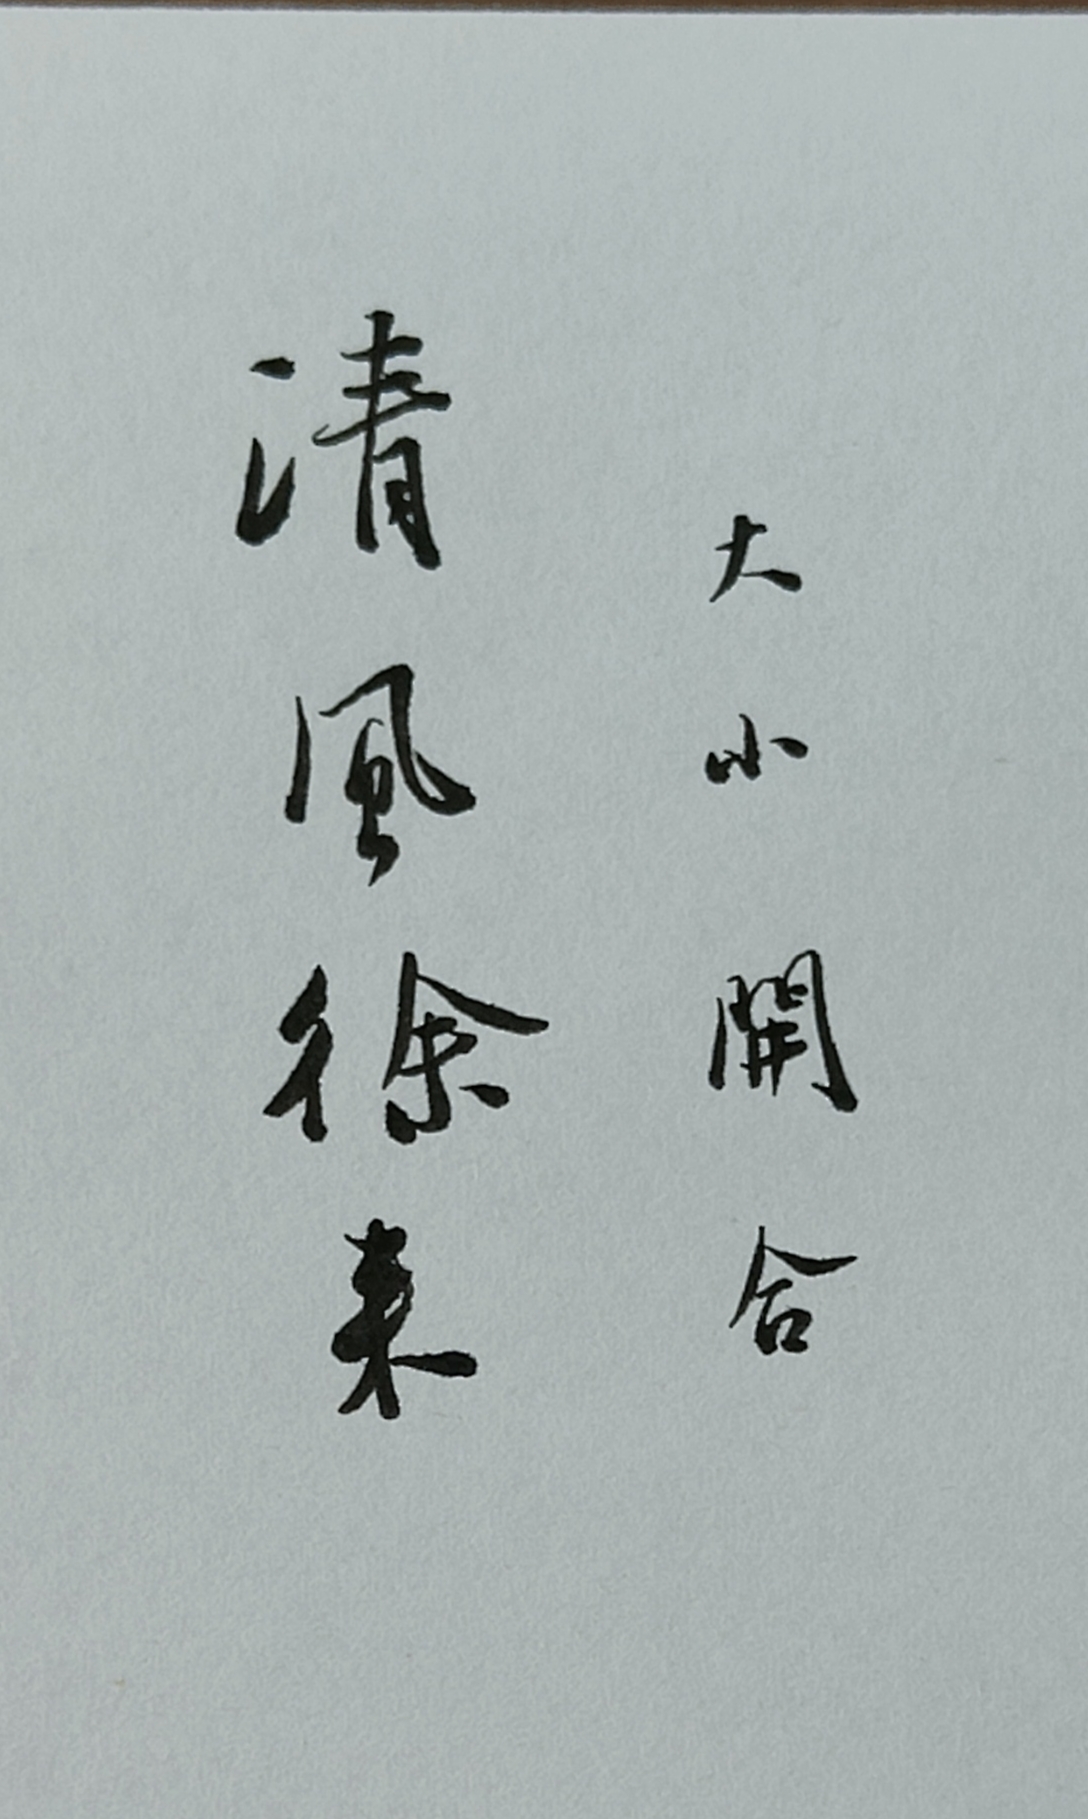 大小開合
清風徐来